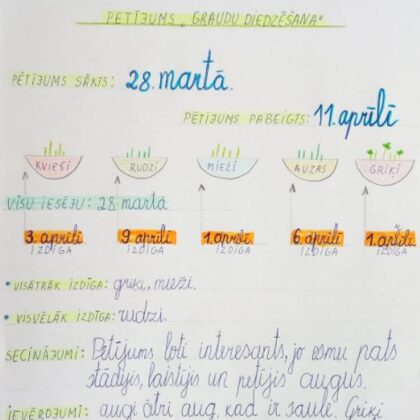 PĒTĪJUMS „GRAUDU DIEDZĒŠANA"
PĒTĪJUMS SĀKTS: 28. martā.
PĒTĪJUMS PABEIGTS: 11. aprīlī
KVIEŠI RUDZI MIEŽI AUZAS GRIĶI
VISU IESĒJU: 28 martā
3. aprīlī 9. aprīlī 1. aprīlī 6. aprīlī 1. aprīlī
IZDĪGA IZDĪGA IZDĪGA IZDĪGA IZDĪGA
• VISĀTRĀK IZDĪGA: griķi, mieži.
• VISVĒLĀK IZDĪGA: rudzi.
SECINĀJUMI: Pētījums ļoti interesants, jo esmu pats
stādījis, laistījis un pētījis augus.
IEVĒROJUMI: augi ātri aug, kad ir saule. Griķi